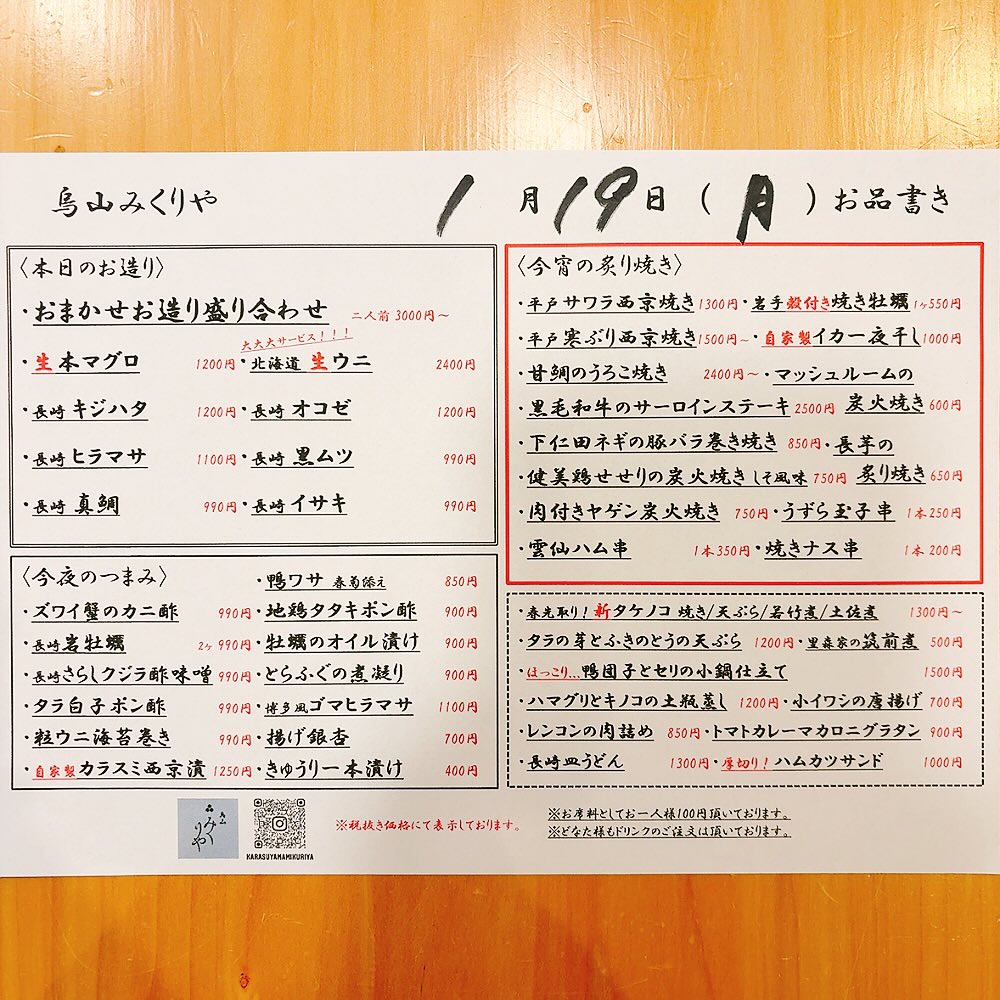 烏山みくりや 1月19日(月)お品書き
〈本日のお造り〉
・おまかせお造り盛り合わせ 二人前 3000円~
大大大サービス!!!
・生本マグロ 1200円・北海道 生ウニ 2400円
・長崎 キジハタ 1200円・長崎 オコゼ 1200円
・長崎 ヒラマサ 1100円・長崎 黒ムツ 990円
・長崎 真鯛 990円・長崎 イサキ 990円
〈今夜のつまみ〉 ・鴨ワサ 春菊添え 850円
・ズワイ蟹のカニ酢 990円・地鶏タタキポン酢 900円
・長崎岩牡蠣 2ヶ 990円・牡蠣のオイル漬け 900円
・長崎さらしクジラ酢味噌 990円・とらふぐの煮凝り 900円
・タラ白子ポン酢 990円・博多風ゴマヒラマサ 1100円
・粒ウニ海苔巻き 990円・揚げ銀杏 700円
・自家製カラスミ西京漬 1250円・きゅうり一本漬け 400円
〈今宵の炙り焼き〉
・平戸サワラ西京焼き 1300円・岩手殻付き焼き牡蠣 1ヶ550円
・平戸寒ぶり西京焼き 1500円~・自家製イカ一夜干し 1000円
・甘鯛のうろこ焼き 2400円~・マッシュルームの
・黒毛和牛のサーロインステーキ 2500円 炭火焼き 600円
・下仁田ネギの豚バラ巻き焼き 850円・長芋の
・健美鶏せせりの炭火焼き しそ風味 750円 炙り焼き 650円
・肉付きヤゲン炭火焼き 750円・うずら玉子串 1本250円
・雲仙ハム串 1本350円・焼きナス串 1本200円
・春先取り!新タケノコ 焼き/天ぷら/若竹煮/土佐煮 1300円~
・タラの芽とふきのとうの天ぷら 1200円・里森家の筑前煮 500円
・ほっこり...鴨団子とセリの小鍋仕立て 1500円
・ハマグリとキノコの土瓶蒸し 1200円・小イワシの唐揚げ 700円
・レンコンの肉詰め 850円・トマトカレーマカロニグラタン 900円
・長崎皿うどん 1300円・厚切り!ハムカツサンド 1000円
みくりや
KARASUYAMAMIKURIYA
※税抜き価格にて表示しております。
※お席料としてお一人様100円頂いております。
※どなた様もドリンクのご注文は頂いております。